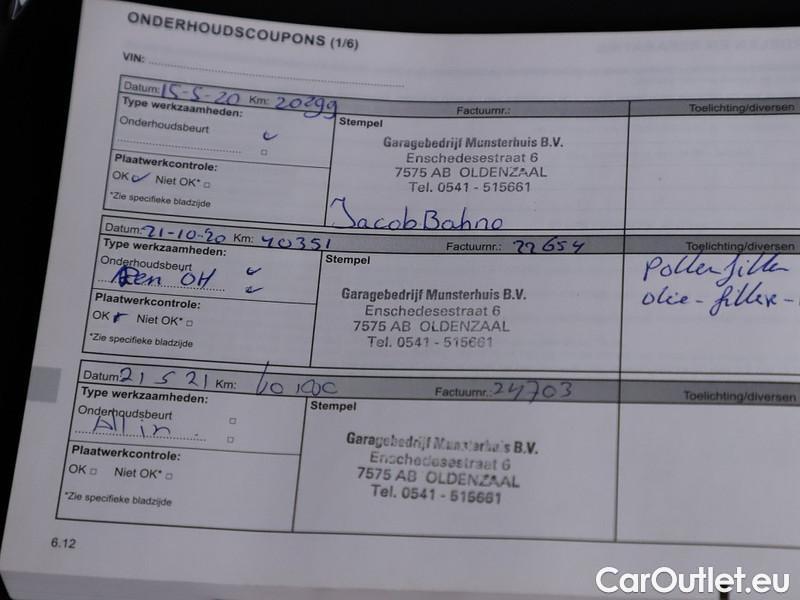 ONDERHOUDSCOUPONS (1/6)
VIN:
Datum: 15-5-20 Km: 20299 Factuurnr.: Toelichting/diversen
Type werkzaamheden:
Onderhoudsbeurt
Plaatwerkcontrole:
OK Niet OK*
*Zie specifieke bladzijde
Stempel
Garagebedrijf Munsterhuis B.V.
Enschedesestraat 6
7575 AB OLDENZAAL
Tel. 0541 - 515661
Jacob Bahno
Datum: 21-10-20 Km: 40351 Factuurnr.: 22654 Toelichting/diversen
Type werkzaamheden:
Onderhoudsbeurt
OH
Plaatwerkcontrole:
OK Niet OK*
*Zie specifieke bladzijde
Stempel
Garagebedrijf Munsterhuis B.V.
Enschedesestraat 6
7575 AB OLDENZAAL
Tel. 0541 - 515661
Pollenfilter
olie-filter-
Datum: 21 5 21 Km: Factuurnr.: 24703 Toelichting/diversen
Type werkzaamheden:
Onderhoudsbeurt
All in
Plaatwerkcontrole:
OK Niet OK*
*Zie specifieke bladzijde
Stempel
Garagebedrijf Munsterhuis B.V.
Enschedesestraat 6
7575 AB OLDENZAAL
Tel. 0541 - 515661
6.12
CarOutlet.eu